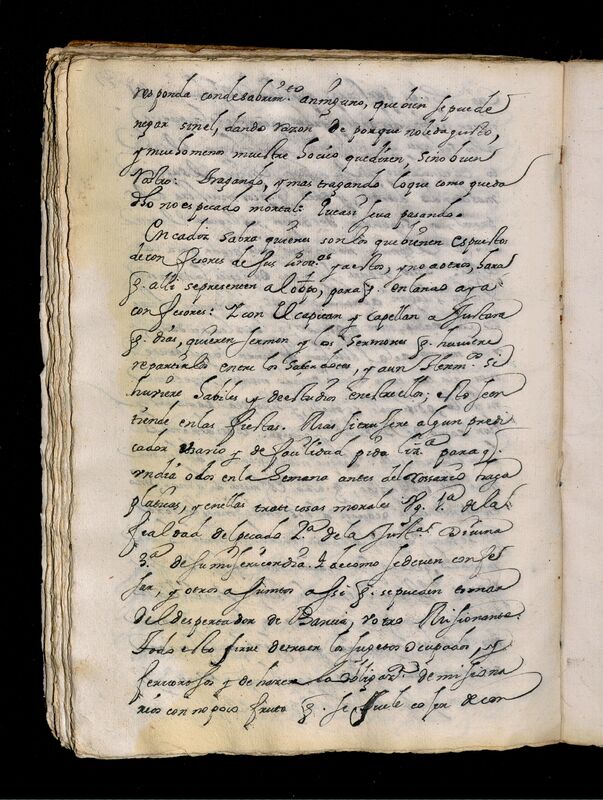 responda con desabrim.to aninguno, que bien se puede
negar sin el, dando razon de porque no le da gusto,
y mucho menos muestre hocico que dizen, sino buen
rostro: Tragando, y mas tragando lo que como queda
dho no es pecado mortal: Y casi se va pasando.
En cadiz sabra quienes son los que vienen espuestos
de confesores de sus Prou.as y a estos, y no a otros, hara
q. alli se presenten al obpo, para q. en la nao aya
confesores: Y con El capitan y Capellan ajustara
q. dias, quieren sermon y los Sermones q. huviere
repartirlos entre los sacerdotes, y aun Herm.os si
huviere habiles y de estudios entre ellos; esto se en
tiende en las fiestas. Mas si truxere algun predi
cador diario y de facilidad pida liz.a para q.
vn dia o dos en la Semana antes del Rossario haga
platicas, y en ellas trate cosas morales Vg. 1.a de la
fealdad del pecado 2.a de la Just.a Divina
3.a de su misericordia. 4 de como se deven confes
sar, y otros asumtos assi q. se pueden tomar
del despertador de Barcia, v otro Misionario.
Todo esto sirve de traer los sugetos ocupados, y
fervorosos y de hazer la obligaz.n de misiona
rios con no poco fruto q. se suele coser de con